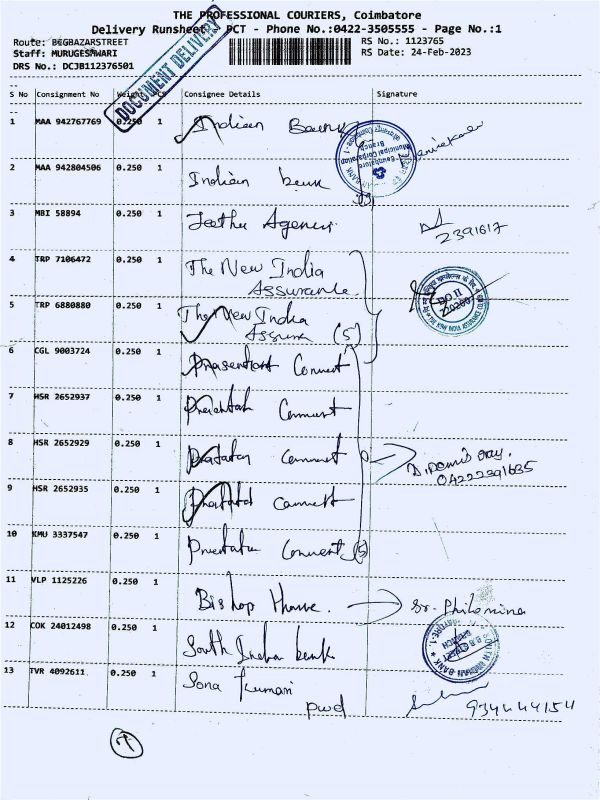 THE PROFESSIONAL COURIERS, Coimbatore
Delivery Runsheet PCT - Phone No.:0422-3505555 - Page No.:1
Route: BIGBAZARSTREET
RS No.: 1123765
Staff: MURUGESHWARI
RS Date: 24-Feb-2023
DRS No.: DCJB112376501
DOCUMENT DELIVERY
S No Consignment No Weight Consignee Details Signature
1 MAA 942767769 0.250 1 Indian Bank
2 MAA 942804506 0.250 1 Indian bank
3 MBI 58894 0.250 1 Jeetha Agency
2391617
4 TRP 7106472 0.250 1 The New India
Assurance
5 TRP 6880880 0.250 1 The New India
Assura (5)
DO II
720200
6 CGL 9003724 0.250 1 Convent
7 HSR 2652937 0.250 1 Convent
8 HSR 2652929 0.250 1 Convent
04222391635
9 HSR 2652935 0.250 1 Convent
10 KMU 3337547 0.250 1 Convent (5)
11 VLP 1125226 0.250 1 Bishop House. Sr. Philomina
12 COK 24012498 0.250 1 South India bank
13 TVR 4092611 0.250 1 Sona Kumari
pwd
934444154